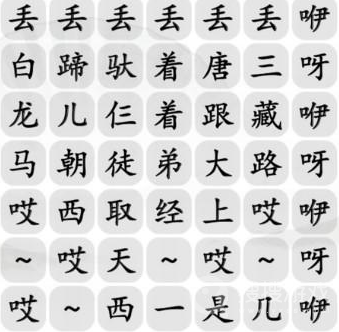 丢丢丢丢丢丢咿
白蹄驮着唐三呀
龙儿仨着跟藏咿
马朝徒弟大路呀
哎西取经上哎咿
~哎天~哎~呀
哎~西一是几咿